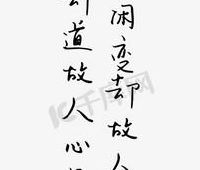 闲变却故人
却道故人心
千库网